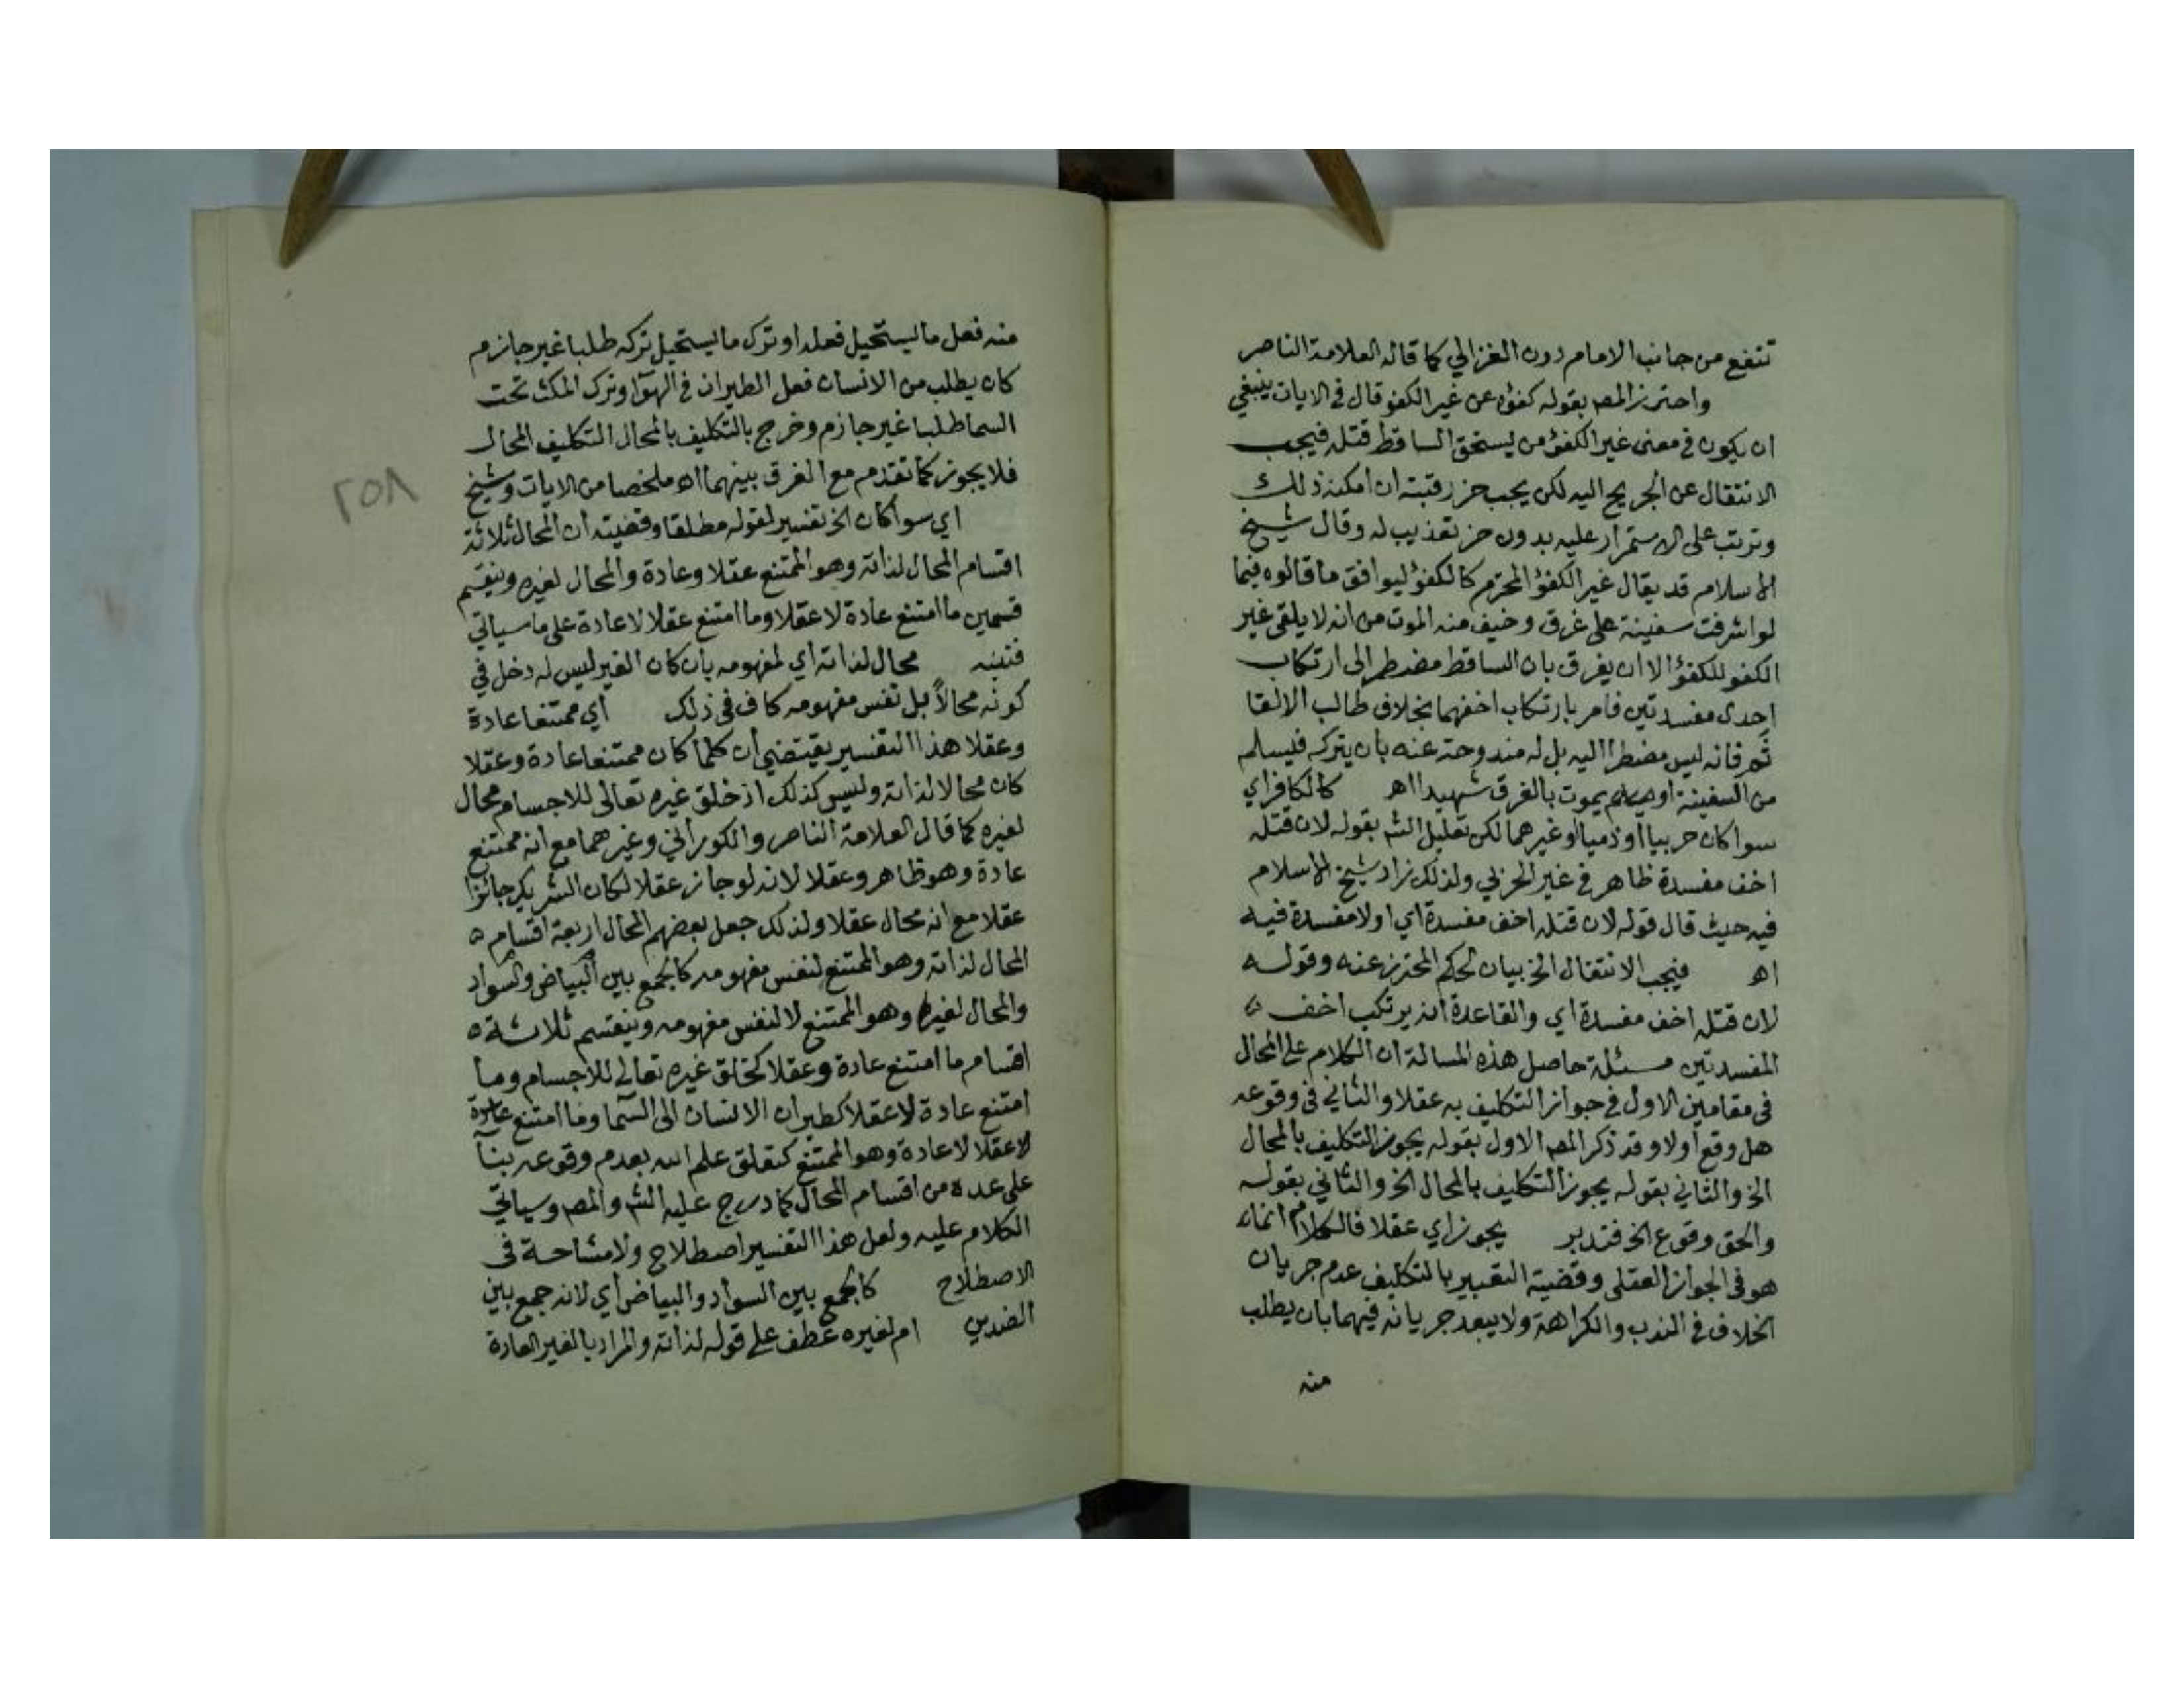 تنفع من جانب الامام دون الغزالي كما قاله العلامة الناصر
واحترز المصـ بقوله كفؤه عن غير الكفو قال في الايات ينبغي
ان يكون في معنى غير الكفؤ من يستحق الساقط قتله فيجب
الانتقال عن الجريح اليه لكن يجب حز رقبته ان امكنه ذلك
وترتب على الاستمرار عليه بدون حز تعذيب له وقال شيخ
الاسلام قد يقال غير الكفؤ المحترم كالكفؤ ليوافق ما قالوه فيما
لو اشرفت سفينة على غرق وخيف منه الموت من انه لا يلقى غير
الكفو للكفؤ الا ان يفرق بان الساقط مضطر الى ارتكاب
احدى مفسدتين فامر بارتكاب اخفهما بخلاف طالب الالقا
ثَم فانه ليس مضطرا اليه بل له مندوحة عنه بان يتركه فيسلم
من السفينة او يموت بالغرق شهيدا اهـ كالكافر اي
سوا كان حربيا او ذميا او غيرهما لكن تعليل الشـ بقوله لان قتله
اخف مفسدة ظاهر في غير الحربي ولذلك زاد شيخ الاسلام
فيه حيث قال قوله لان قتله اخف مفسدة اي او لا مفسدة فيه
اهـ فيجب الانتقال الخ بيان لحكم المحترز عنه وقوله
لان قتله اخف مفسدة اي والقاعدة انه يرتكب اخف ه
المفسدتين مسئلة حاصل هذه المسالة ان الكلام على المحال
في مقامين الاول في جواز التكليف به عقلا والثاني في وقوعه
هل وقع أولا وقد ذكر المصـ الاول بقوله يجوز التكليف بالمحال
الخ والثاني بقوله يجوز التكليف بالمحال الخ والثاني بقوله
والحق وقوع الخ فتدبر يجوز اي عقلا فالكلام انما
هو في الجواز العقلى وقضية التعبير بالتكليف عدم جريان
الخلاف في الندب والكراهة ولا يبعد جريانه فيهما بان يطلب
منه
منه فعل ما ليستحيل فعله او ترك ما يستحيل تركه طلبا غير جازم
كان يطلب من الانسان فعل الطيران في الهوآ او ترك المكث تحت
السما طلبا غير جازم وخرج بالتكليف بالمحال التكليف المحال
فلا يجوز كما تقدم مع الفرق بينهما اهـ ملخصا من الايات وشيخ
٢٥٨
اي سوا كان الخ تفسير لقوله مطلقا وقضيته ان المحال ثلاثة
اقسام المحال لذاته وهو الممتنع عقلا وعادة والمحال لغيره وينقسم
قسمين ما امتنع عادة لا عقلا وما امتنع عقلا لا عادة على ما سياتي
فتنبه محال لذاته أي لمفهومه بان كان الغير ليس له دخل في
كونه محالاً بل نفس مفهومه كاف في ذلك أي ممتنعا عادة
وعقلا هذا التفسير يقتضي أن كلما كان ممتنعا عادة وعقلا
كان محالا لذاته وليس كذلك اذ خلق غيره تعالى للاجسام محال
لغيره كما قال العلامة الناصر والكوراني وغيرهما مع انه ممتنع
عادة وهو ظاهر وعقلا لانه لو جاز عقلا لكان الشريك جائزا
عقلا مع انه محال عقلا ولذلك جعل بعضهم المحال اربعة اقسام ه
المحال لذاته وهو الممتنع لنفس مفهومه كالجمع بين البياض والسواد
والمحال لغيره وهو الممتنع لا لنفس مفهومه وينقسم ثلاثة ه
اقسام ما امتنع عادة وعقلا كخلق غيره تعالى للاجسام وما
امتنع عادة لا عقلا كطيران الانسان الى السما وما امتنع
لا عقلا لا عادة وهو الممتنع كتعلق علم الله بعدم وقوعه بنآ
على عده من اقسام المحال كما درج عليه الشـ والمصـ وسياتي
الكلام عليه ولعل هذا التفسير اصطلاح ولا مشاحة في
الاصطلاح كالجمع بين السواد والبياض أي لانه جمع بين
الضدين ام لغيره عطف على قوله لذاته والمراد بالغير العادة